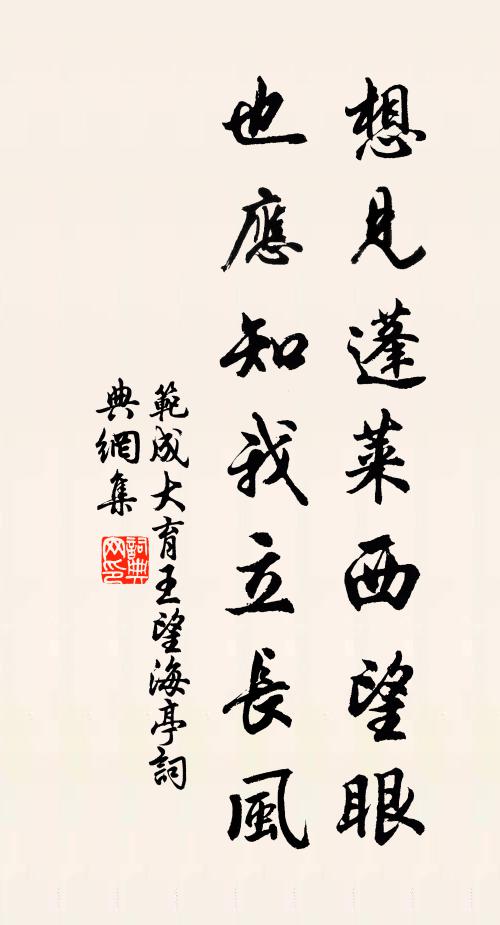 想見蓬萊西望眼
也應知我立長風
範成大育王望海亭詞
典網集
詞典
网印